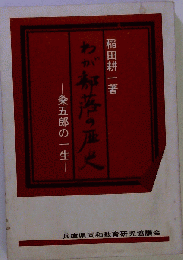 稲田耕一著
わが部落の歴史
―粂五郎の一生―
兵庫県同和教育研究協議会